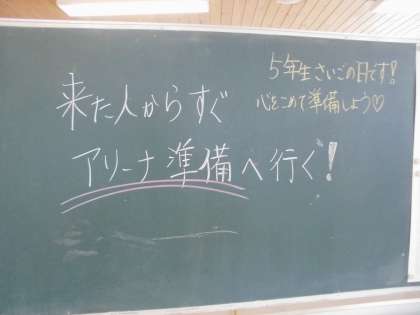 5年生さいごの日です!
心をこめて準備しよう♡
来た人からすぐ
アリーナ準備へ行く!